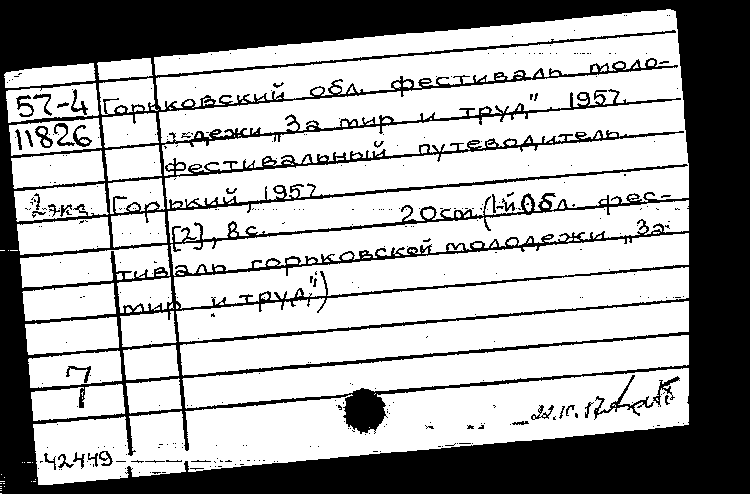 57-4 Горьковский обл. фестиваль моло-
11826 дежи „За мир и труд". 1957.
фестивальный путеводитель.
2 экз. Горький, 1957.
[2], 8 с. 20 см. (1-й Обл. фес-
тиваль горьковской молодежи „За
мир и труд")
7
22.IV.57
42449